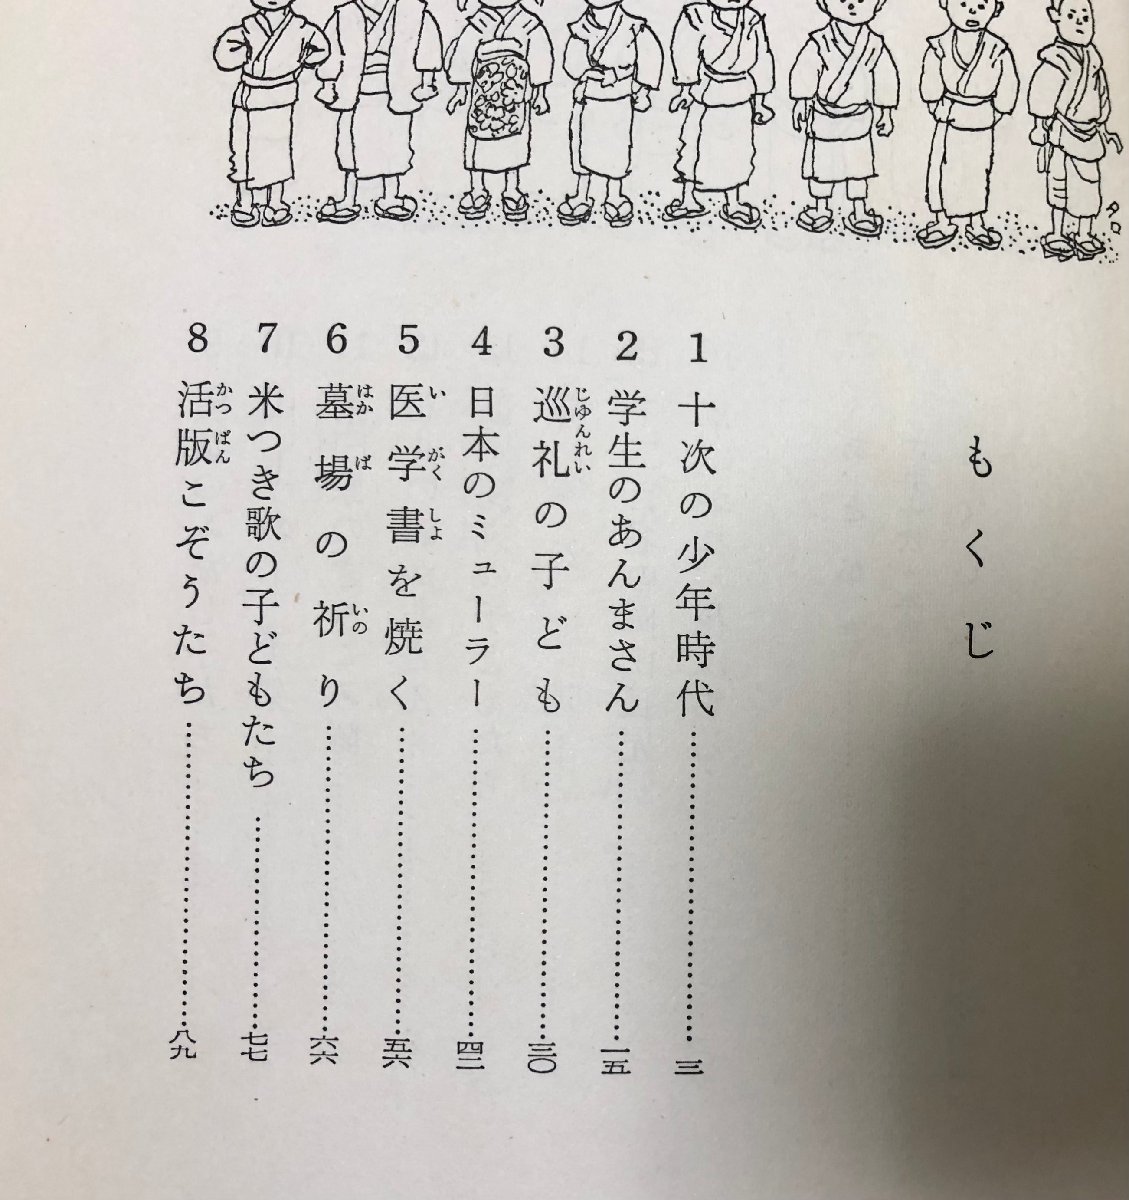 もくじ
1 十次の少年時代……三
2 学生のあんまさん……一五
3 巡礼の子ども……三〇
4 日本のミューラー……四二
5 医学書を焼く……五六
6 墓場の祈り……六六
7 米つき歌の子どもたち……七七
8 活版こぞうたち……八九
じゆんれい
い がく しよ
はか ば いの
かつ ぱん
タロ